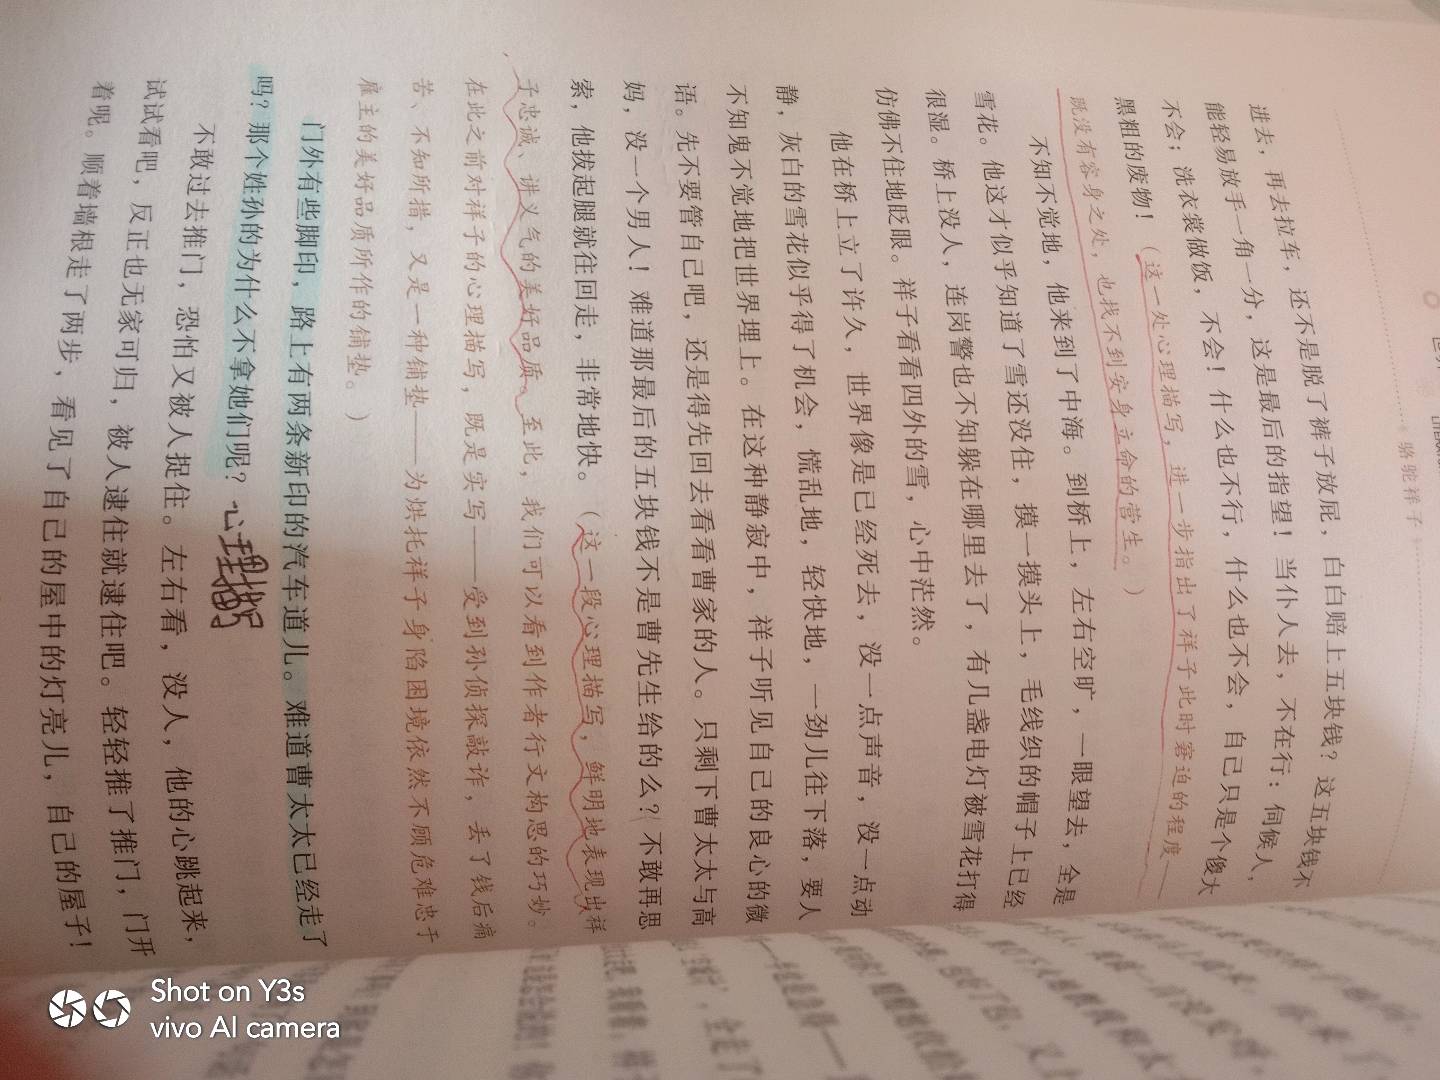 骆驼祥子
进去，再去拉车，还不是脱了裤子放屁，白白赔上五块钱？这五块钱不
能轻易放手一角一分，这是最后的指望！当仆人去，不在行：伺候人，
不会；洗衣裳做饭，不会！什么也不行，什么也不会，自己只是个傻大
黑粗的废物！（这一处心理描写，进一步指出了祥子此时窘迫的程度——
既没有容身之处，也找不到安身立命的营生。）
不知不觉地，他来到了中海。到桥上，左右空旷，一眼望去，全是
雪花。他这才似乎知道了雪还没住，摸一摸头上，毛线织的帽子上已经
很湿。桥上没人，连岗警也不知躲在哪里去了，有几盏电灯被雪花打得
仿佛不住地眨眼。祥子看看四外的雪，心中茫然。
他在桥上立了许久，世界像是已经死去，没一点声音，没一点动
静，灰白的雪花似乎得了机会，慌乱地，轻快地，一劲儿往下落，要人
不知鬼不觉地把世界埋上。在这种静寂中，祥子听见自己的良心的微
语。先不要管自己吧，还是得先回去看看曹家的人。只剩下曹太太与高
妈，没一个男人！难道那最后的五块钱不是曹先生给的么？不敢再思
索，他拔起腿就往回走，非常地快。（这一段心理描写，鲜明地表现出祥
子忠诚、讲义气的美好品质。至此，我们可以看到作者行文构思的巧妙。
在此之前对祥子的心理描写，既是实写——受到孙侦探敲诈，丢了钱后痛
苦、不知所措，又是一种铺垫——为烘托祥子身陷困境依然不顾危难忠于
雇主的美好品质所作的铺垫。）
门外有些脚印，路上有两条新印的汽车道儿。难道曹太太已经走了
吗？那个姓孙的为什么不拿她们呢？心理描写
不敢过去推门，恐怕又被人捉住。左右看，没人，他的心跳起来，
试试看吧，反正也无家可归，被人逮住就逮住吧。轻轻推了推门，门开
着呢。顺着墙根走了两步，看见了自己的屋中的灯亮儿，自己的屋子！
Shot on Y3s
vivo AI camera